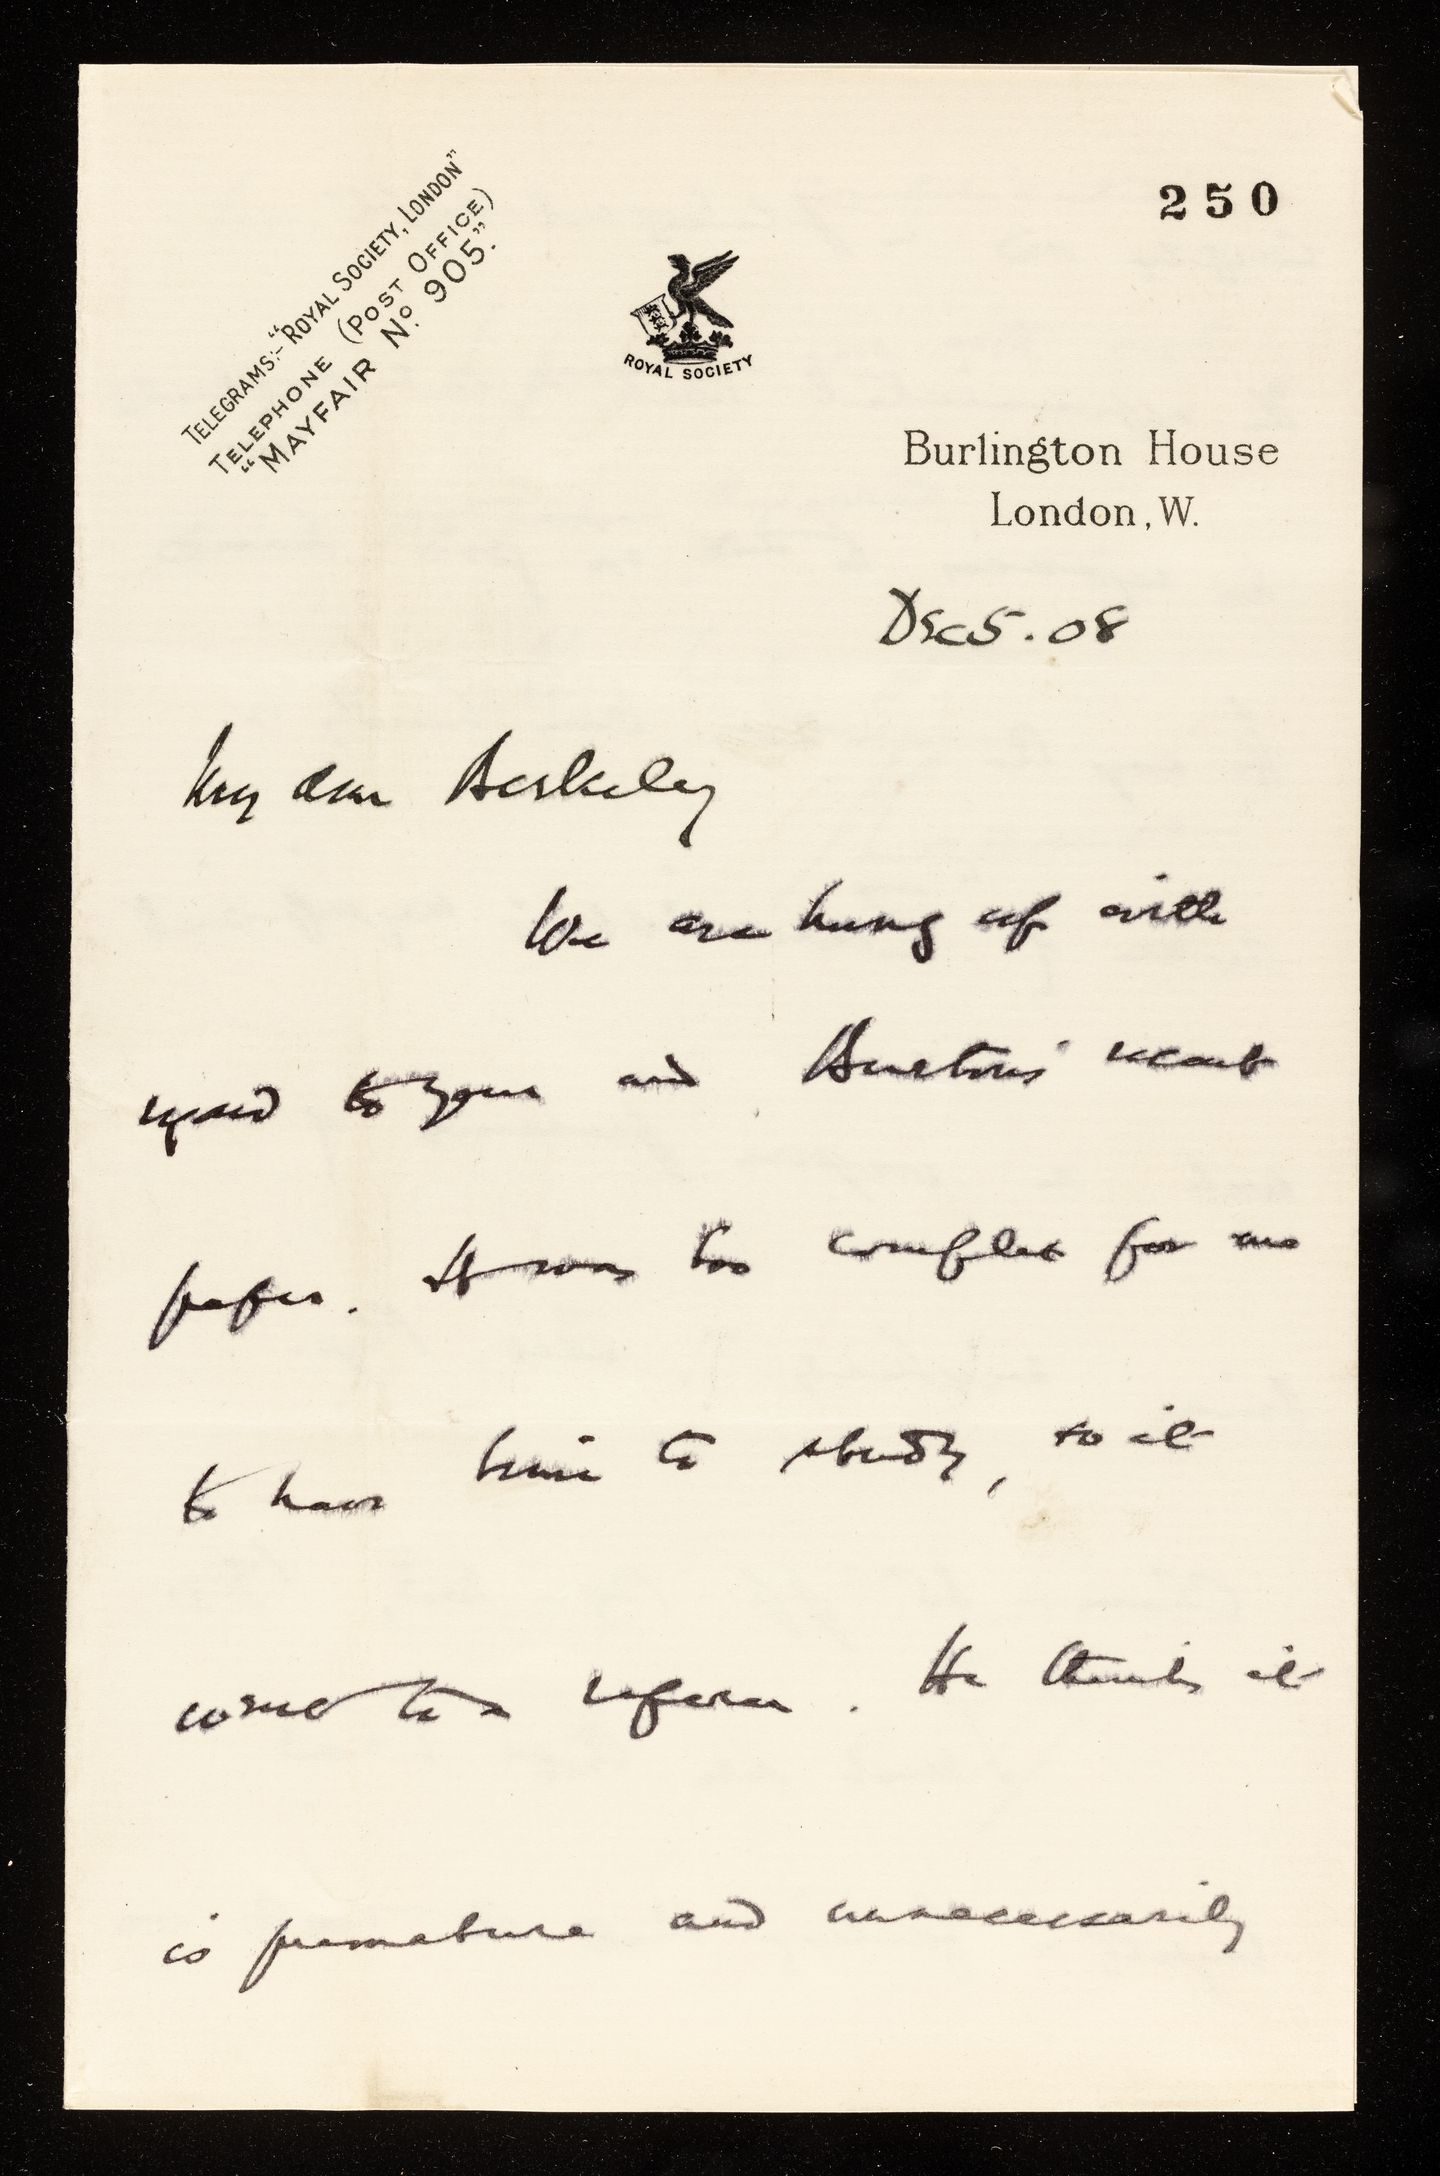 250
TELEGRAMS:- "ROYAL SOCIETY, LONDON"
TELEPHONE (POST OFFICE)
"MAYFAIR No. 905."
ROYAL SOCIETY
Burlington House
London, W.
Dec 5. 08
My dear Berkeley
We are hung up with
regard to your and Burton's recent
paper. It was too complex for me
to have time to study, so it
went to a referee. He thinks it
is premature and unnecessarily